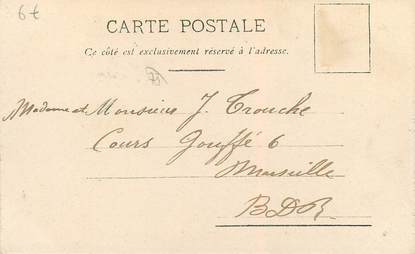 6€
CARTE POSTALE
Ce côté est exclusivement réservé à l'adresse.
Madame et Monsieur J. Trouche
Cours Gouffé 6
Marseille
BDR